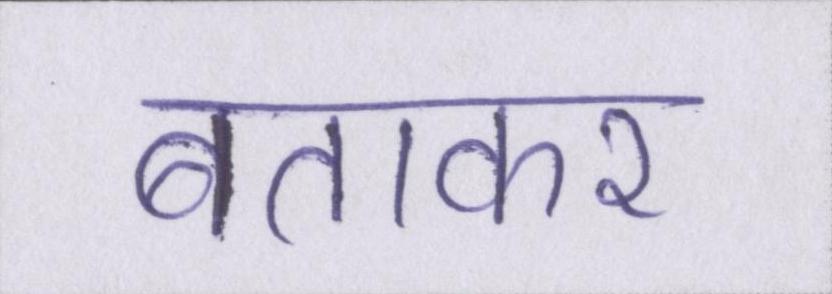 बताकर